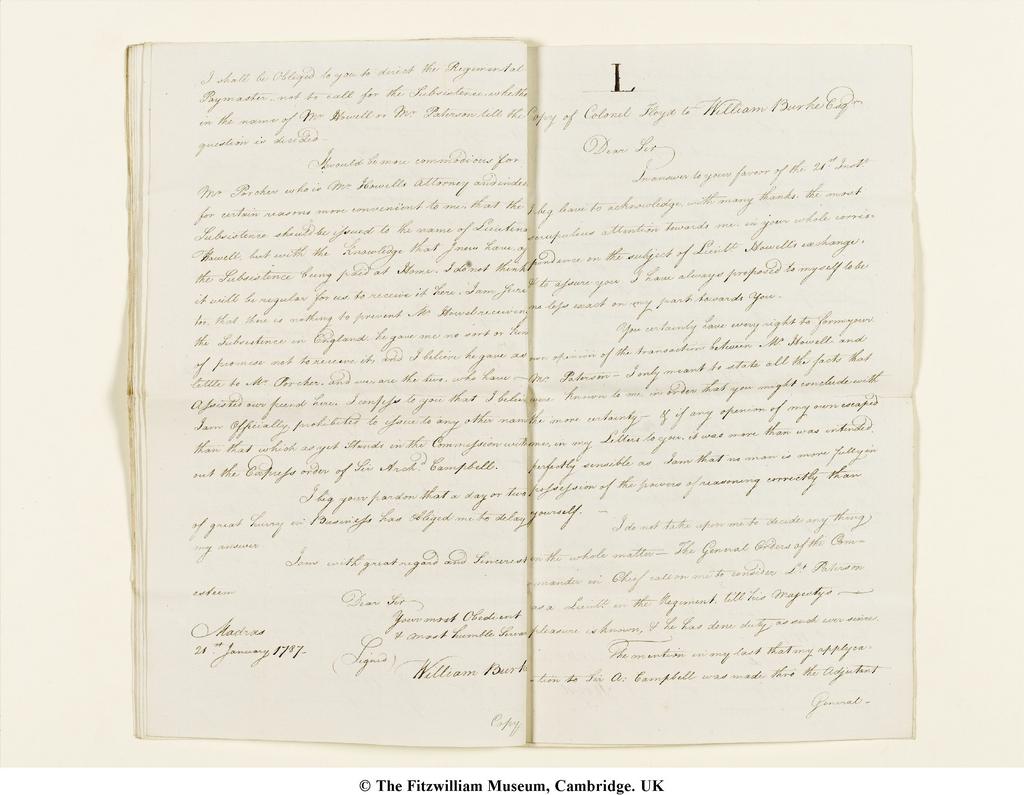 I shall be Obliged to you to direct the Regimental
Paymaster, not to call for the Subsistence, whethe
in the name of Mr Howell or Mr Paterson till the
question is decided
It would be more commodious for
Mr Porcher who is Mr Howells Attorney and indee
for certain reasons more convenient to me, that the
Subsistence should be issued to the name of Lieutena
Howell, but with the Knowledge that I now have, of
the Subsistence being paid at Home, I do not think
it will be regular for us to receive it here. I am Sure
too, that there is nothing to prevent Mr Howell receiving
the Subsistence in England, he gave me no sort or kin
of promise not to receive it, and I believe he gave as
little to Mr Porcher, and we are the two, who have
Assisted our friend here. I confess to you that I belie
I am Officially, prohibited to issue to any other nam
than that which as yet Stands in the Commission with
out the Express order of Sir Archd Campbell.
I beg your pardon that a day or two
of great hurry in Bussiness has obliged me to delay
my answer
I am with great regard and Sincerest
esteem
Dear Sir
Your most Obedient
& most humble Serva
Madras
21st January 1787
(Signed) William Burk
Copy
L
Copy of Colonel Floyd to William Burke Esqr
Dear Sir
In answer to your favor of the 21st Instt
I beg leave to acknowledge, with many thanks, the most
scrupulous attention towards me, in your whole corres-
pondence on the subject of Lieutt Howell's exchange,
& to assure you I have always proposed to myself to be
no less exact on my part towards You.
You certainly have every right to form your
own opinion of the transaction between Mr Howell and
Mr Paterson - I only meant to state all the facts that
were known to me, in order that you might conclude with
the more certainty - & if any openion of my own escaped
me, in my Letters to you, it was more than was intended,
perfectly sensible as I am that no man is more fully in
possession of the powers of reasoning correctly than
yourself. -
I do not take upon me to decide any thing
on the whole matter - The General Orders of the Com-
mander in Chief call on me to consider Lt Paterson
as a Lieutt in the Regiment, till his Majestys
pleasure is known, & he has done duty as such ever since
The mention in my last that my applyca-
tion to Sir A: Campbell was made thro the Adjutant
General -
© The Fitzwilliam Museum, Cambridge. UK